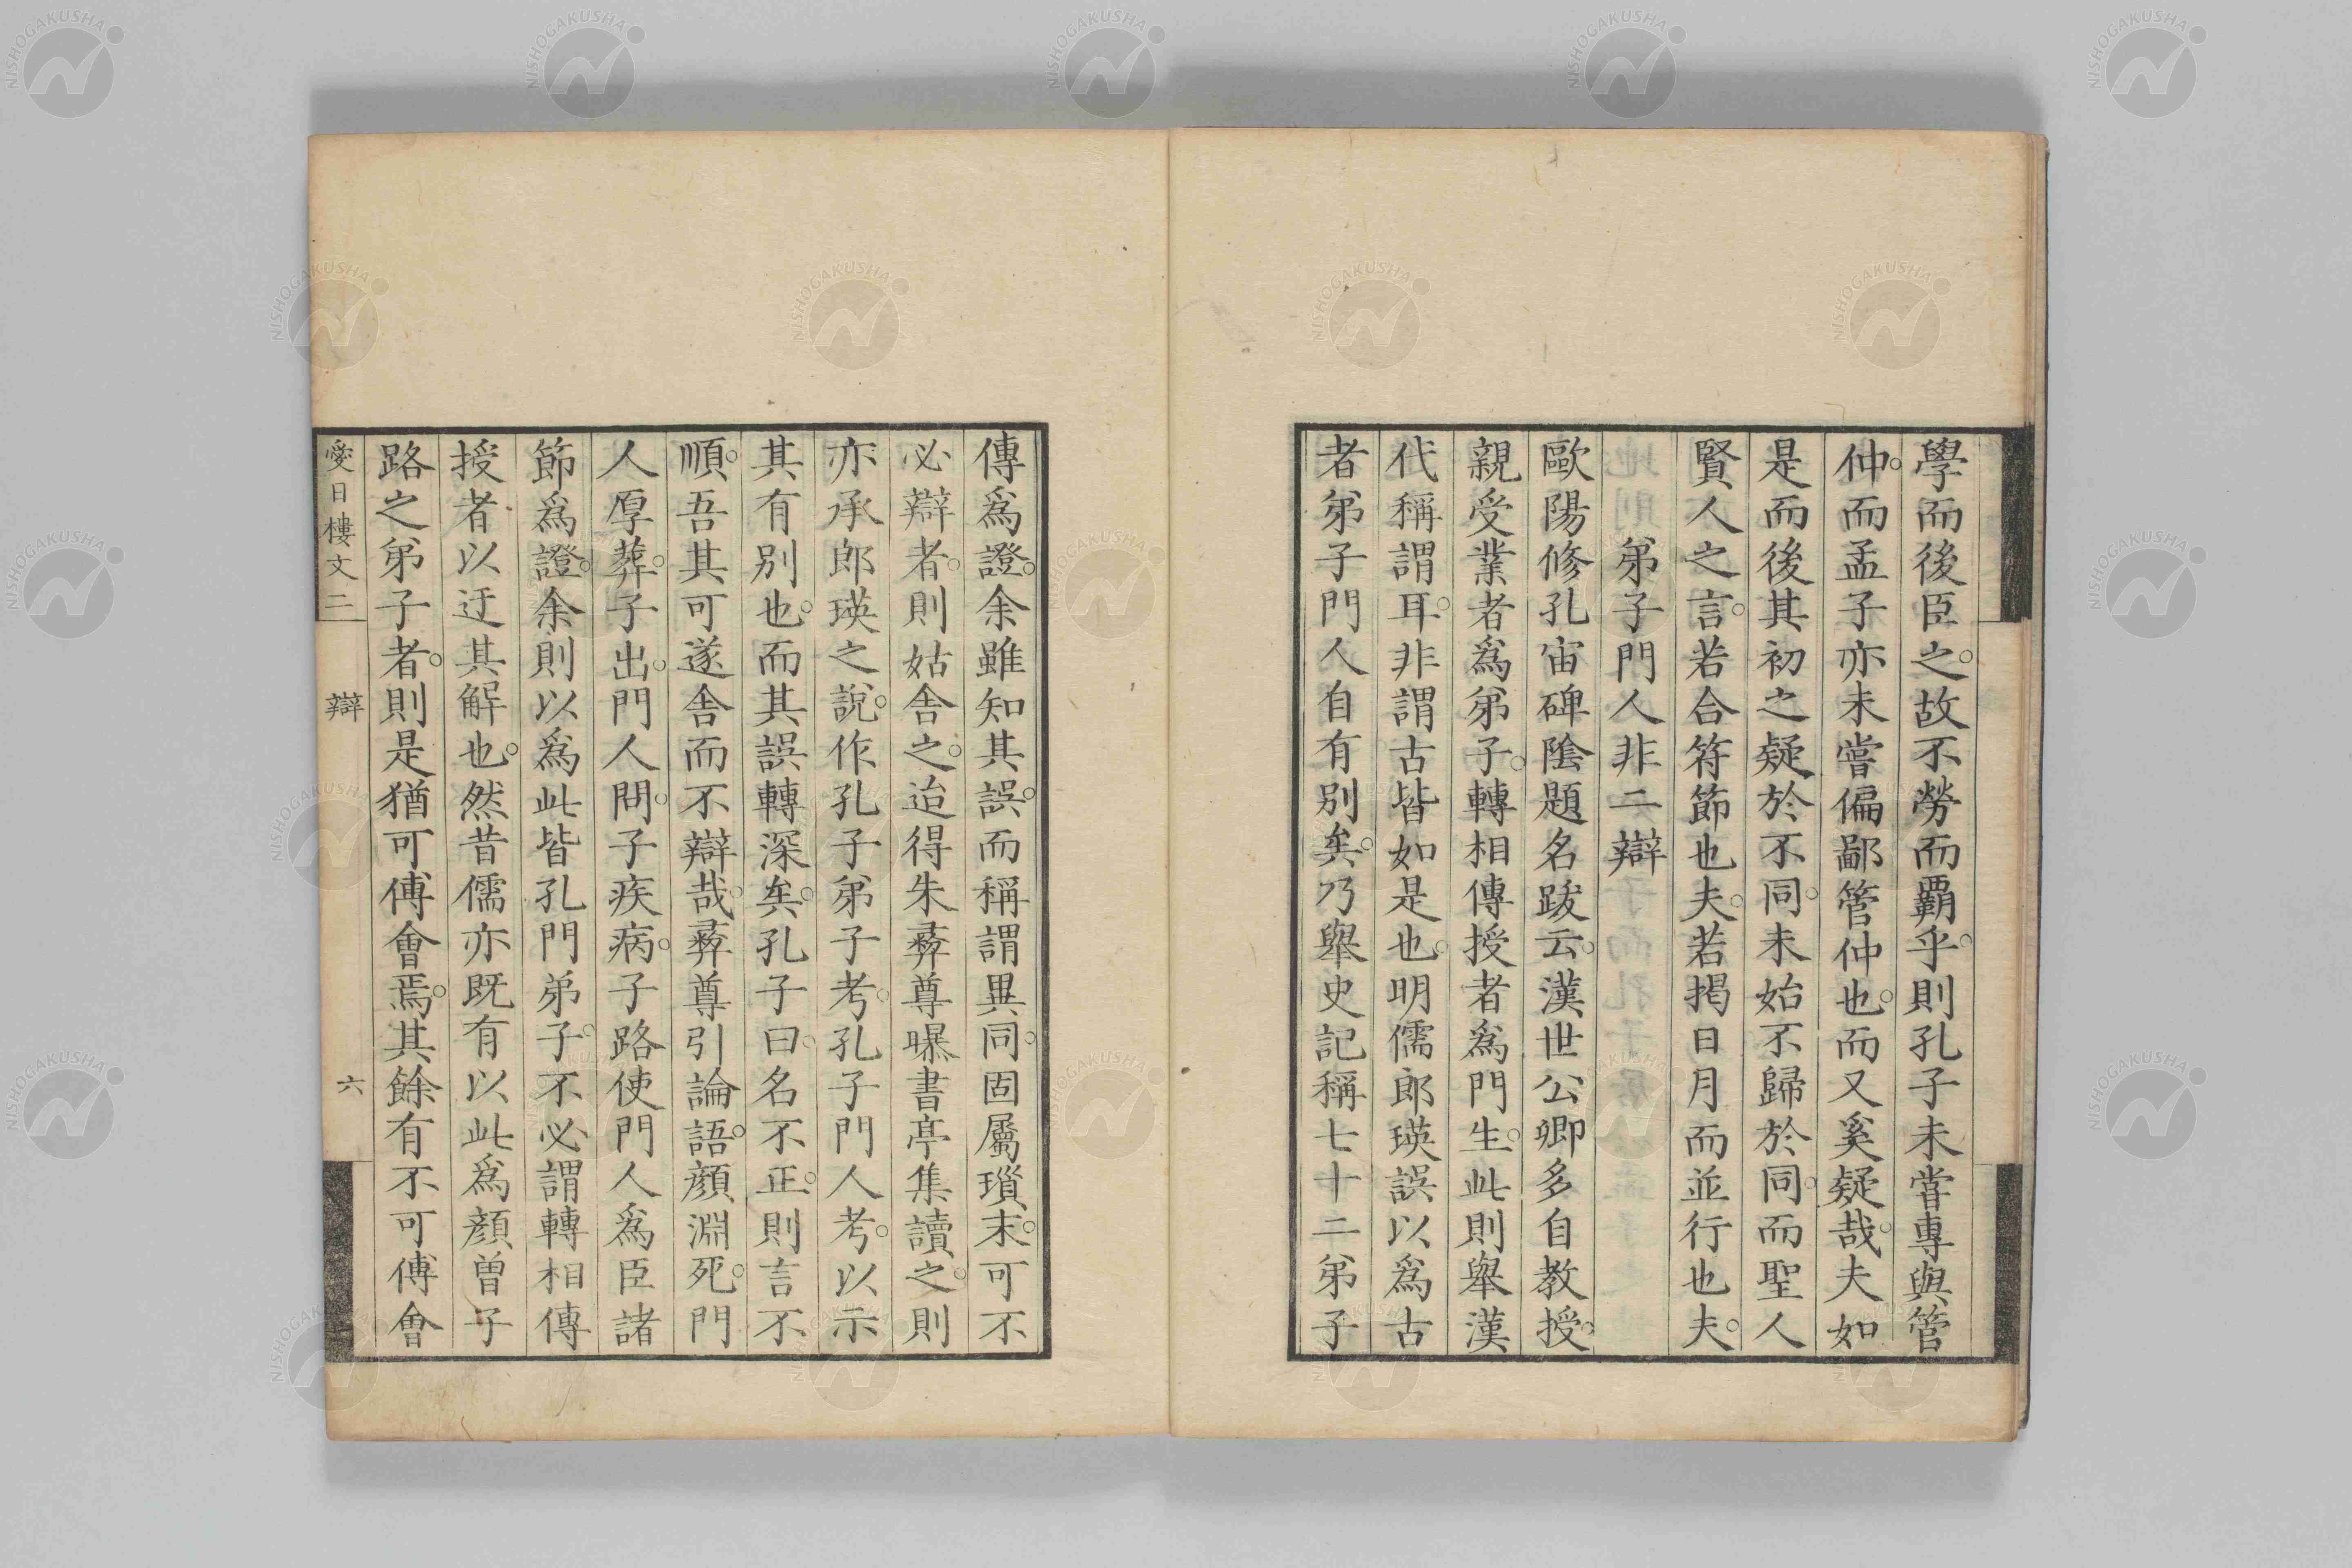 學而後臣之。故不勞而覇乎。則孔子未嘗專與管
仲。而孟子亦未嘗偏鄙管仲也。而又奚疑哉。夫如
是而後其初之疑於不同。未始不歸於同。而聖人
賢人之言。若合符節也夫。若揭日月而並行也夫。
弟子門人非二辯
歐陽修孔宙碑陰題名跋云。漢世公卿多自教授。
親受業者爲弟子。轉相傳授者爲門生。此則擧漢
代稱謂耳。非謂古皆如是也。明儒郎瑛誤以爲古
者弟子門人自有別矣。乃擧史記稱七十二弟子
傳爲證。余雖知其誤。而稱謂異同。固屬瑣末。可不
必辯者。則姑舍之。迨得朱彝尊曝書亭集讀之。則
亦承郎瑛之說。作孔子弟子考。孔子門人考。以示
其有別也。而其誤轉深矣。孔子曰。名不正。則言不
順。吾其可遂舍而不辯哉。彝尊引論語。顏淵死。門
人厚葬。子出。門人問。子疾病。子路使門人爲臣諸
節爲證。余則以爲此皆孔門弟子。不必謂轉相傳
授者以迂其解也。然昔儒亦既有以此爲顏曾子
路之弟子者。則是猶可傅會焉。其餘有不可傅會
愛日樓文二 辯 六
NISHOGAKUSHA